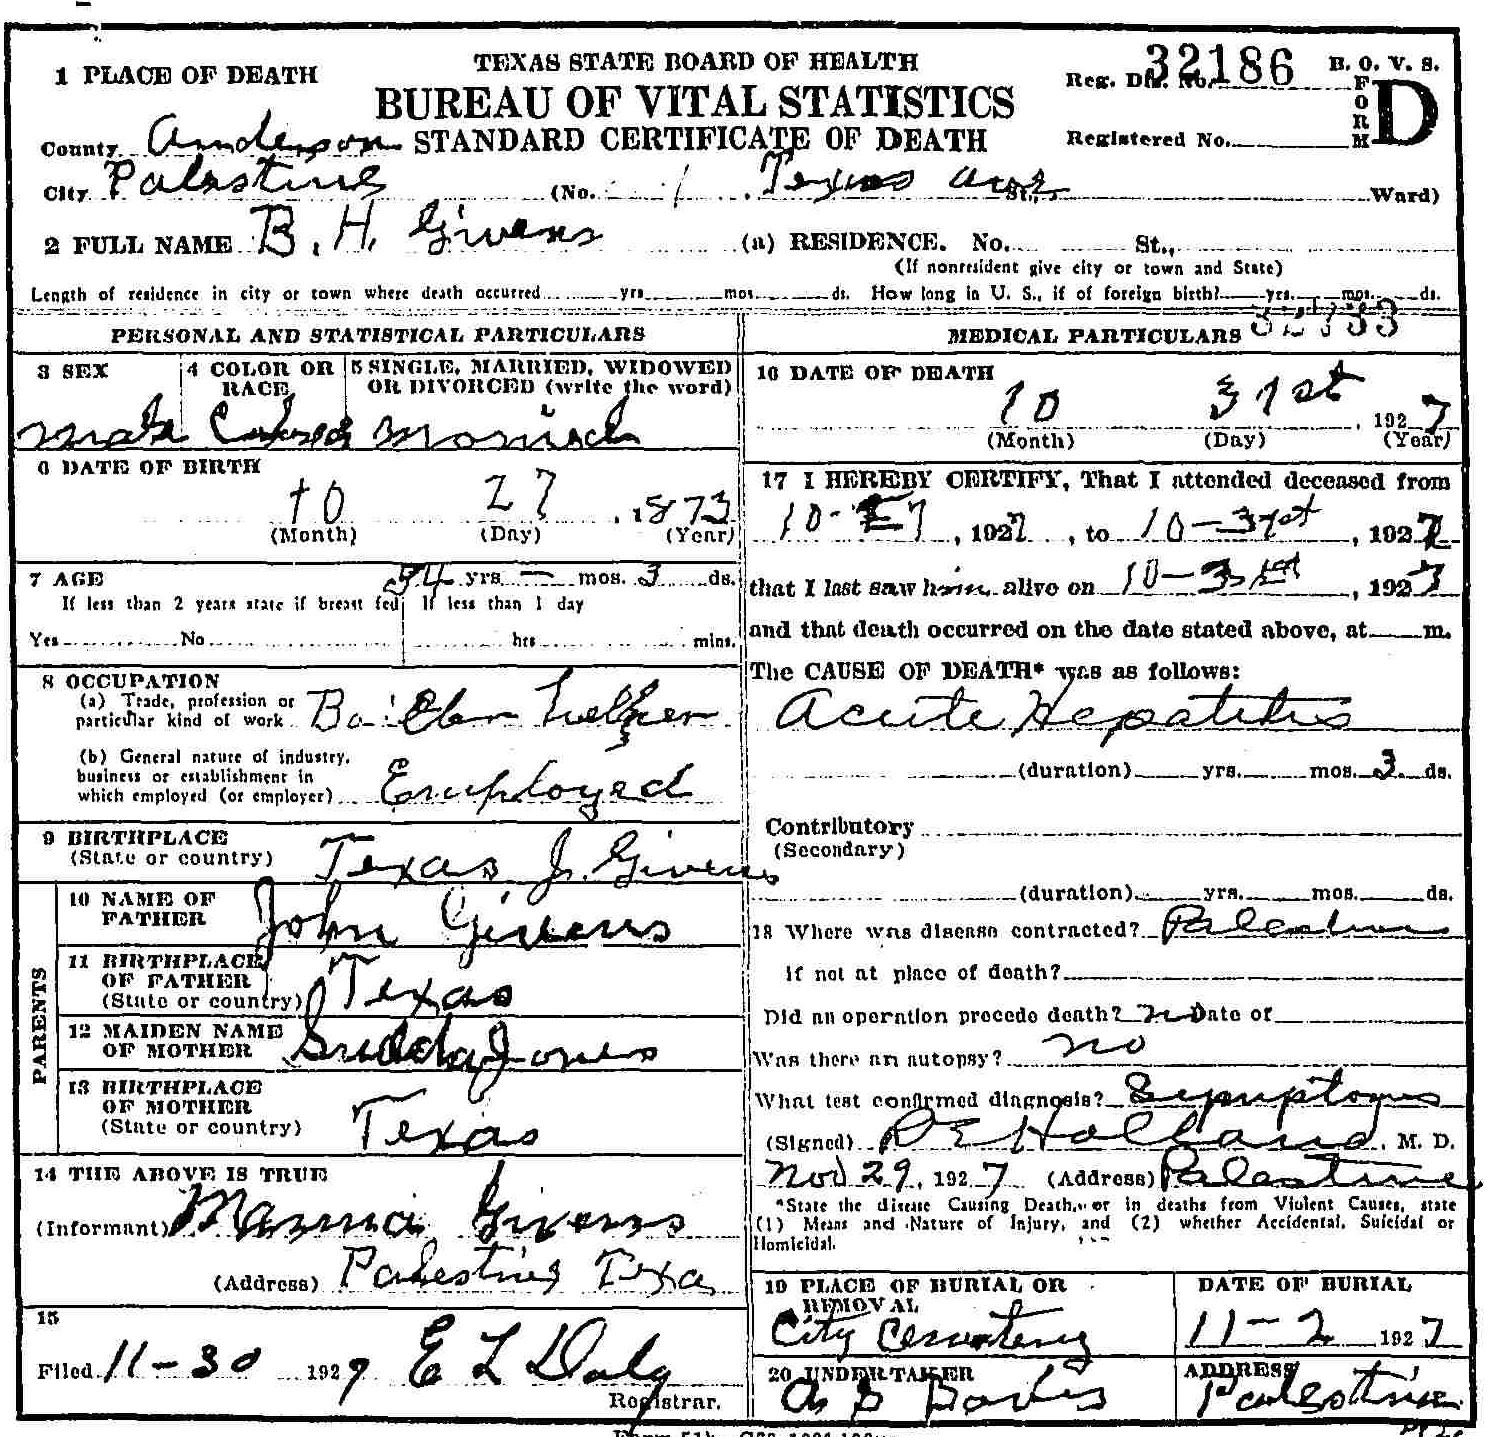 TEXAS STATE BOARD OF HEALTH
BUREAU OF VITAL STATISTICS
STANDARD CERTIFICATE OF DEATH
32186
Reg. Dis. No.
Registered No.
B. O. V. S.
FORM D
1 PLACE OF DEATH
County Anderson
City Palestine (No. 1 Texas ave St., Ward)
2 FULL NAME B. H. Givens (a) RESIDENCE. No. St.,
(If nonresident give city or town and State)
Length of residence in city or town where death occurred yrs. mos. ds. How long in U. S., if of foreign birth? yrs. mos. ds.
PERSONAL AND STATISTICAL PARTICULARS
3 SEX
Male
4 COLOR OR RACE
Colored
5 SINGLE, MARRIED, WIDOWED
OR DIVORCED (write the word)
Married
6 DATE OF BIRTH
10 27, 1873
(Month) (Day) (Year)
7 AGE 54 yrs. — mos. 3 ds.
If less than 2 years state if breast fed
Yes No
If less than 1 day
hrs mins.
8 OCCUPATION
(a) Trade, profession or
particular kind of work Helper
(b) General nature of industry,
business or establishment in
which employed (or employer) Employed
9 BIRTHPLACE
(State or country) Texas J. Givens
PARENTS
10 NAME OF
FATHER John Givens
11 BIRTHPLACE
OF FATHER
(State or country) Texas
12 MAIDEN NAME
OF MOTHER Jones
13 BIRTHPLACE
OF MOTHER
(State or country) Texas
14 THE ABOVE IS TRUE
(Informant) Givens
(Address) Palestine Texa
15
Filed 11-30 1927 E L Daly
Registrar.
MEDICAL PARTICULARS
16 DATE OF DEATH
10 31st, 1927
(Month) (Day) (Year)
17 I HEREBY CERTIFY, That I attended deceased from
10-27, 1927, to 10-31st, 1927
that I last saw him alive on 10-31st, 1927
and that death occurred on the date stated above, at m.
The CAUSE OF DEATH* was as follows:
Acute Hepatitis
(duration) yrs. mos. 3 ds.
Contributory
(Secondary)
(duration) yrs. mos. ds.
18 Where was disease contracted? Palestine
if not at place of death?
Did an operation precede death? no Date of
Was there an autopsy? no
What test confirmed diagnosis? Symptoms
(Signed) Holland, M. D.
Nov 29, 1927 (Address) Palestine
*State the disease Causing Death, or in deaths from Violent Causes, state
(1) Means and Nature of Injury, and (2) whether Accidental, Suicidal or
Homicidal.
19 PLACE OF BURIAL OR
REMOVAL
City Cemetery
DATE OF BURIAL
11-2 1927
20 UNDERTAKER
ADDRESS
Palestine